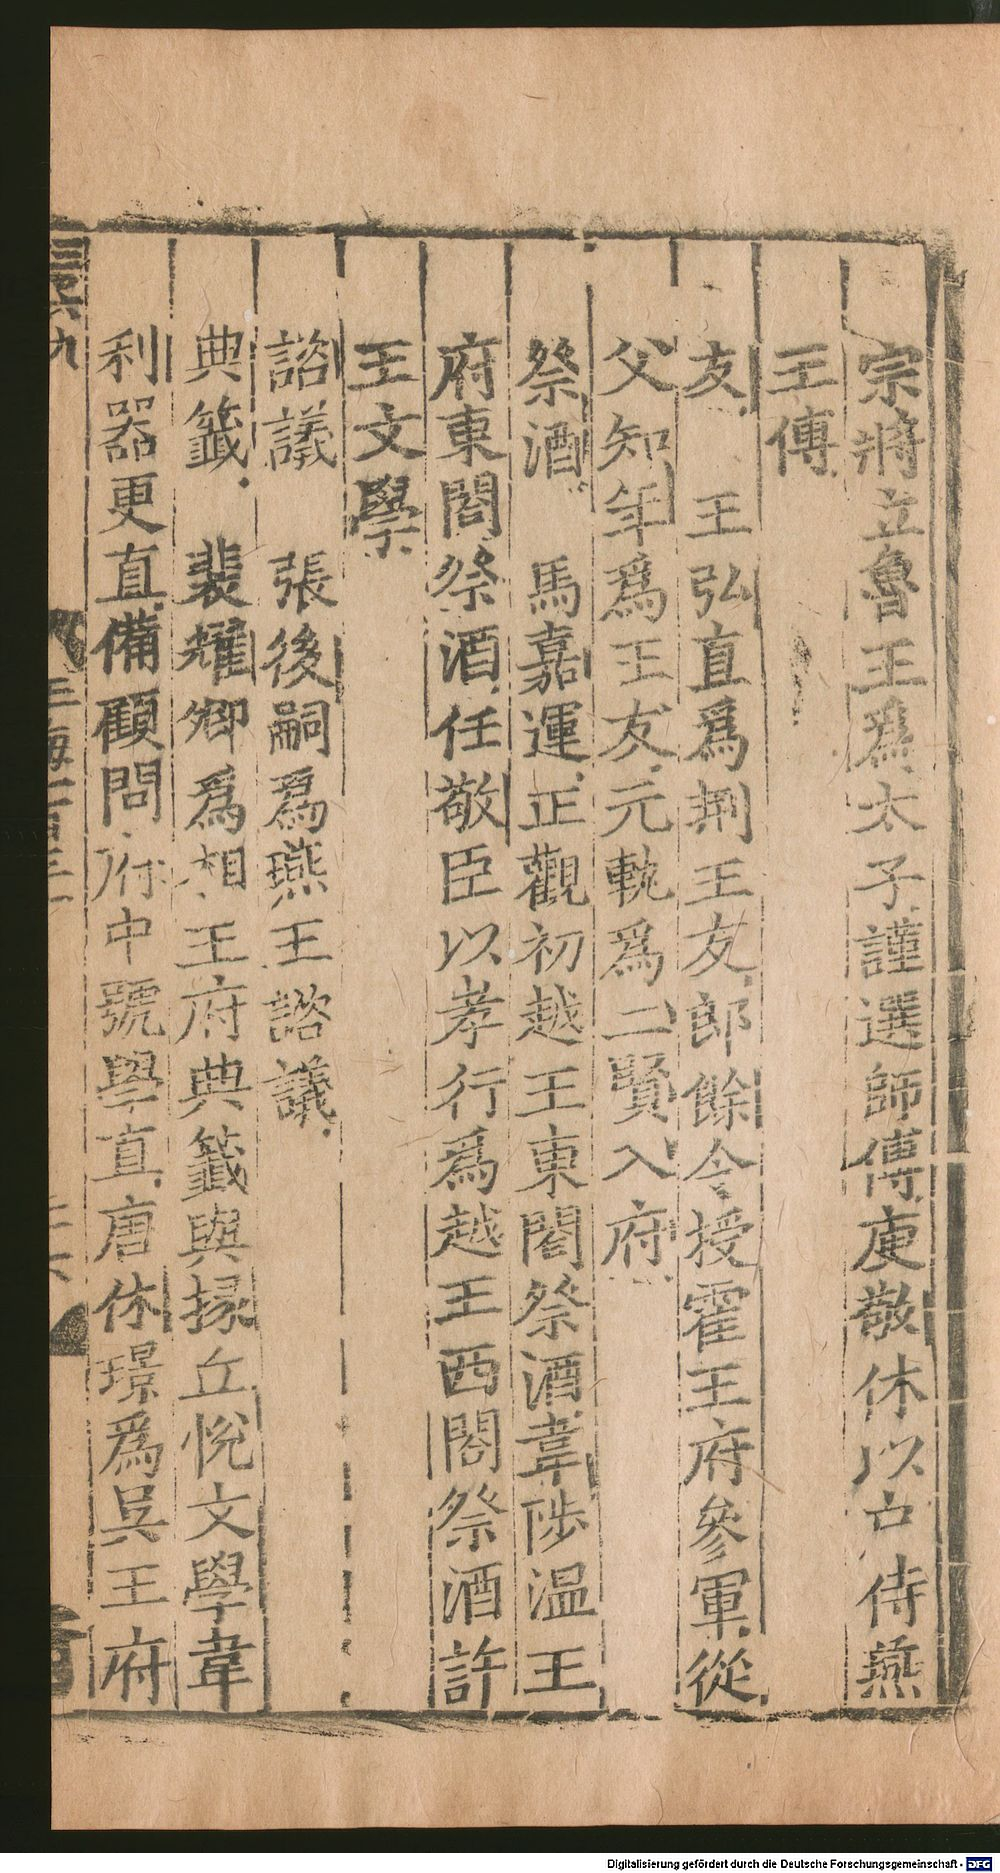 宗將立魯王爲太子謹選師傅庾敬休以戶侍燕
王傅
友　王弘直爲荆王友郎餘令授霍王府參軍從
父知年爲王友元軌爲二賢入府
祭酒　馬嘉運正觀初越王東閤祭酒韋陟温王
府東閤祭酒任敬臣以孝行爲越王西閤祭酒許
王文學
諮議　張後嗣爲燕王諮議
典籤　裴耀卿爲相王府典籤與掾丘悅文學韋
利器更直備顧問府中號學直唐休璟爲吳王府
Digitalisierung gefördert durch die Deutsche Forschungsgemeinschaft - DFG